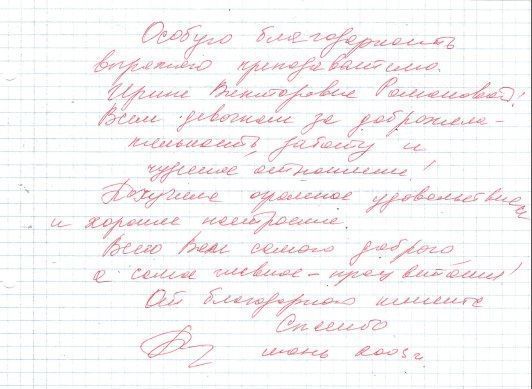 Особую благодарность
выражаю преподавателю
Ирине Викторовне Романовой!
Всем девочкам за доброжела-
тельность, заботу и
чудесное отношение!
Получила огромное удовольствие
и хорошее настроение.
Всего Вам самого доброго
а самое главное - процветания!
От благодарного клиента
Спасибо
июнь 2005 г.